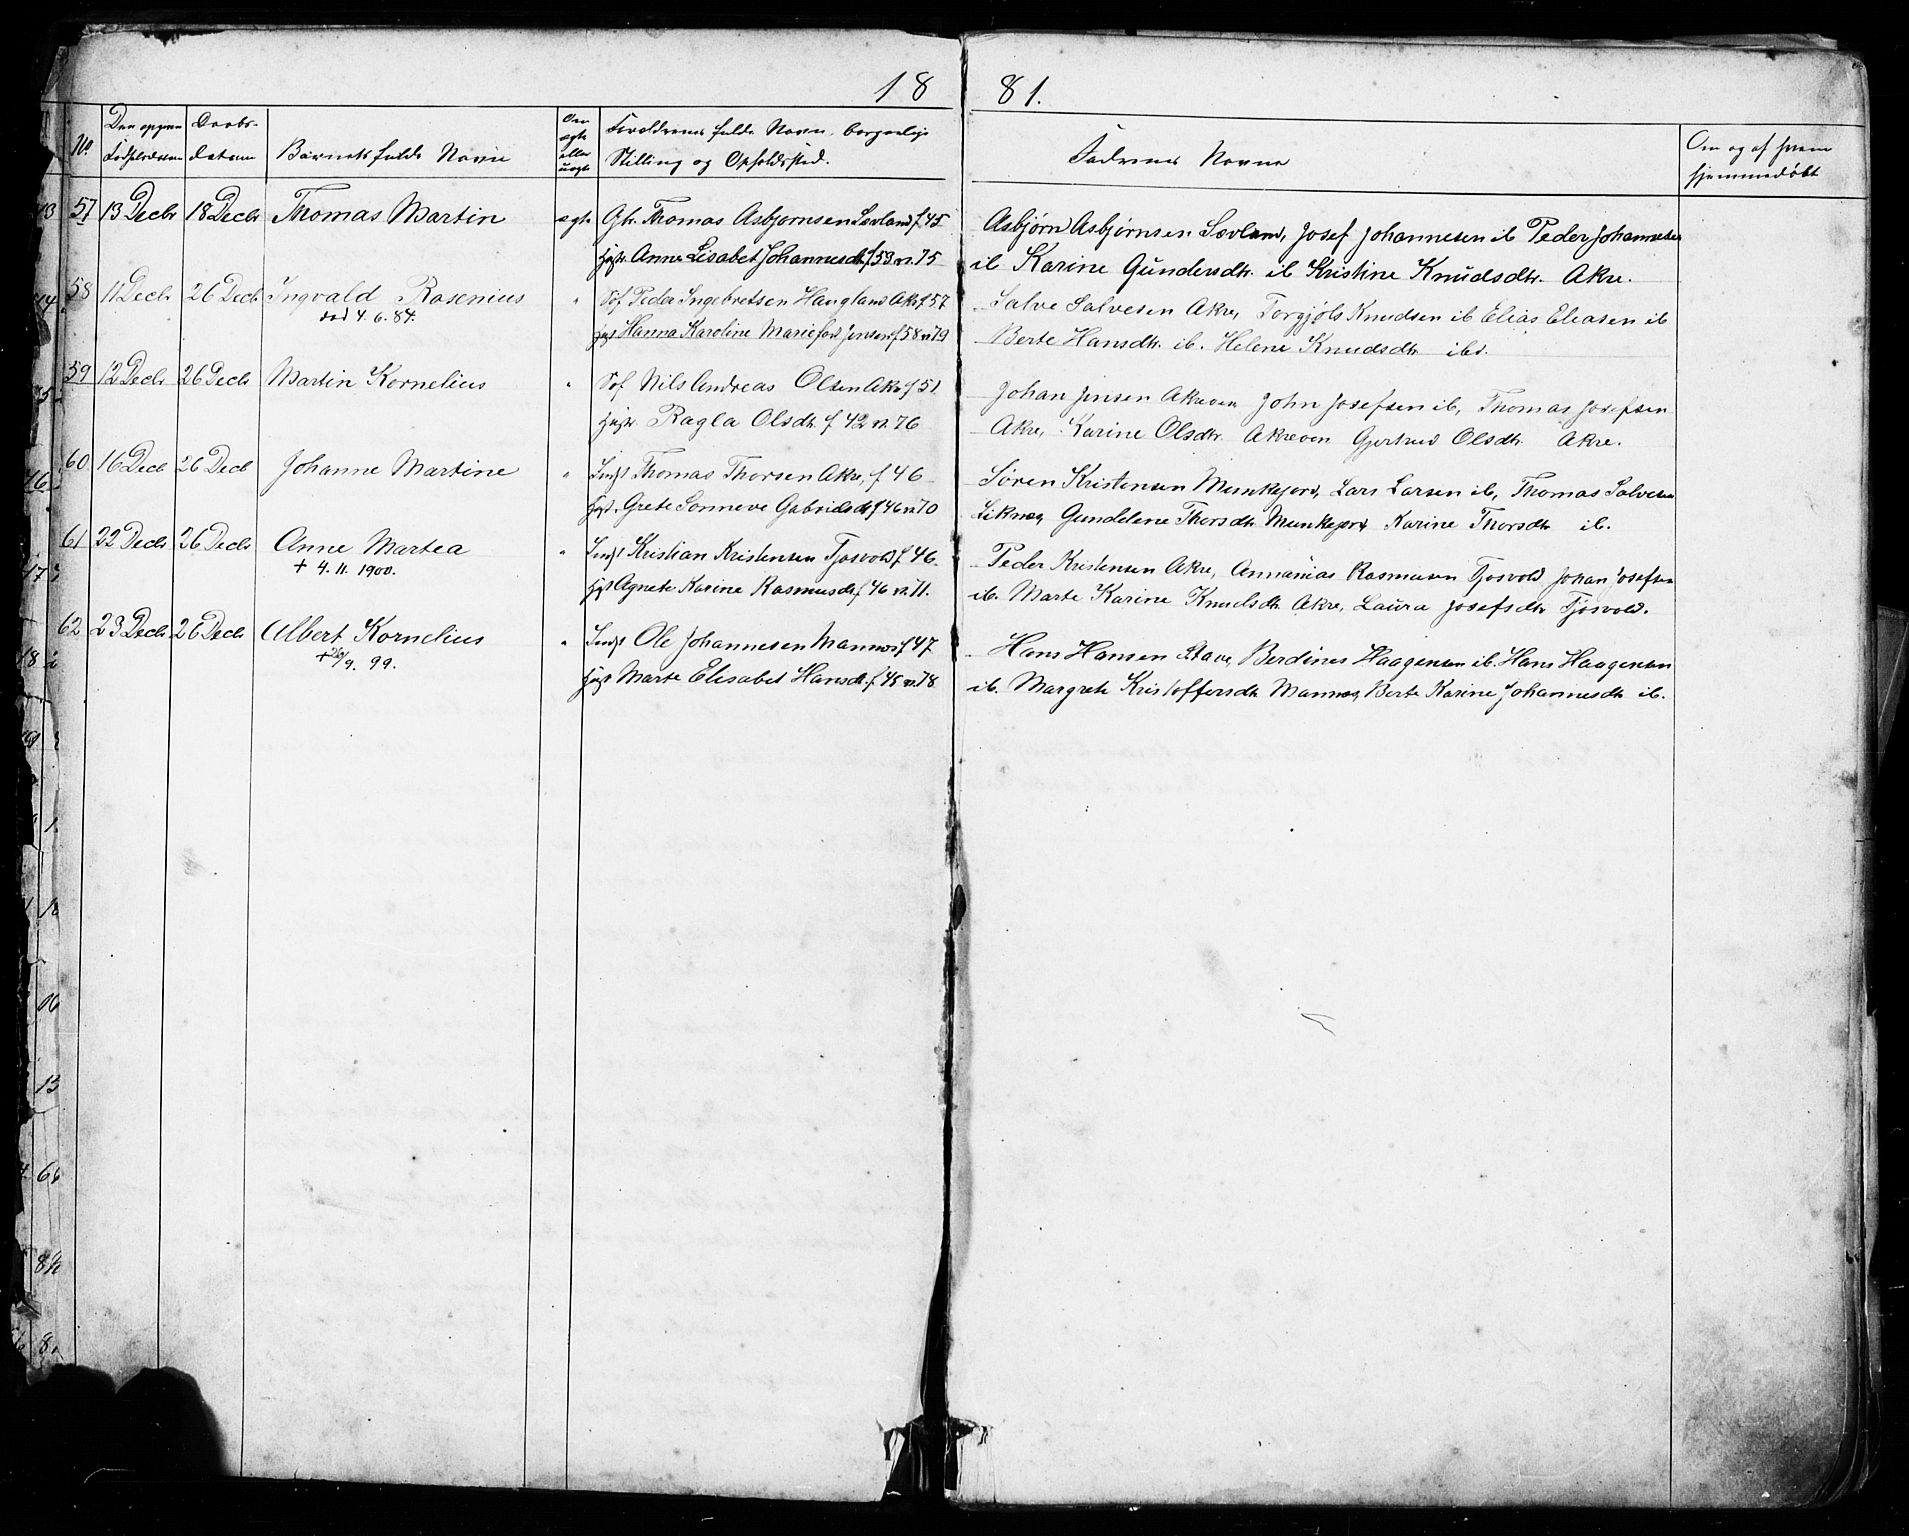 18 81.
No. Den opgivne Fødselsdatum Daabs-datum Barnets fulde Navn Om ægte eller uægte Forældrenes fulde Navn, borgerlige Stilling og Opholdssted. Fadrenes Navne Om og af hvem hjemmedøbt
57 13 Decbr 18 Decbr Thomas Martin ægte Gbr. Thomas Asbjørnsen Sævland f 45
Hustr. Anne Lisabet Johannesdtr f 53 v. 75
Asbjørn Asbjørnsen Sævland, Josef Johannesen ib Peder Johannesen
ib Karine Gundersdtr. ib Kristine Knudsdtr. Akre.
58 11 Decbr 26 Decbr Ingvald Rosenius " Søf Peder Ingebretsen Haugland Akre f 57
død 4. 6. 84.
Hust Hanna Karoline Marie fød Jensen f 58 v. 79
Salve Salvesen Akre, Torgjøls Knudsen ib Elias Eliasen ib
Berte Hansdtr. ib. Helene Knudsdtr ibd.
59 12 Decbr 26 Decbr Martin Kornelius " Søf Nils Andreas Olsen Akre f 51
Hustr Ragla Olsdtr f 42 v. 76
Johan Jensen Akreven John Josefsen ib, Thomas Josefsen
Akre, Karine Olsdtr. Akreven Gjertrud Olsdtr. Akre.
60 16 Decb 26 Decb Johanne Martine " Indst Thomas Thorsen Akre, f 46
Hust. Grete Sønneve Gabrielsdtr f 46 v. 70
Søren Kristensen Munkejord, Lars Larsen ib, Thomas Salvesen
Liknes, Gundelene Thorsdtr. Munkejord Karine Thorsdtr ib.
61 22 Decbr 26 Decbr Anne Martea " Indst Kristian Kristensen Tjøsvold f 46
+ 4. 11. 1900.
Hust Agnete Karine Rasmusdtr f 46 v. 71.
Peder Kristensen Akre, Annanias Rasmusen Tjøsvold Johan Josefsen
ib. Marte Karine Knudsdtr Akre, Laura Josefsdtr Tjøsvold.
62 23 Decbr 26 Decbr Albert Kornelius " Indst Ole Johannesen Mannes f 47
+ 26/9. 99.
Hust Marte Elisabet Hansdtr f 48 v. 78
Hans Hansen Stave, Berdines Haagensen ib. Hans Haagensen
ib. Margrete Kristoffersdtr Mannes, Berte Karine Johannesdtr ib.